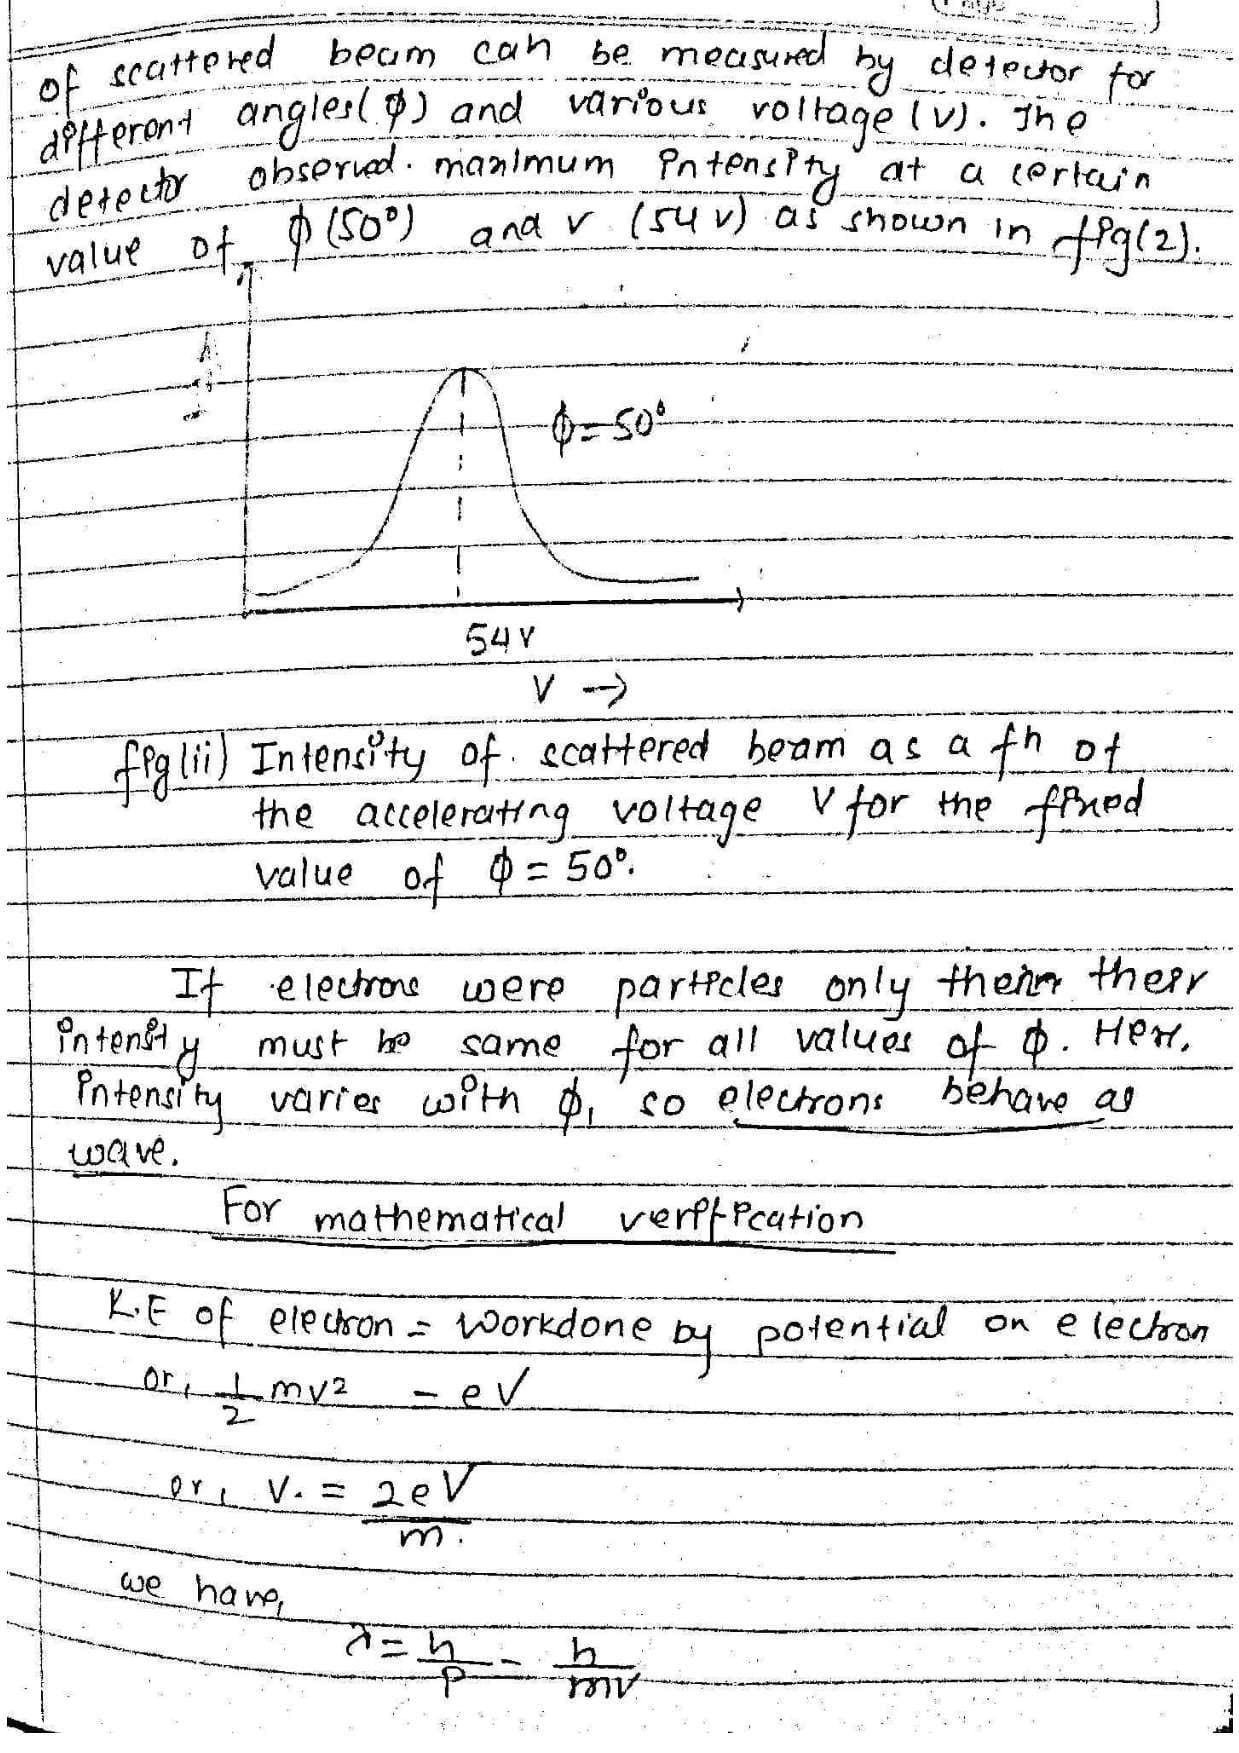 of scattered beam can be measured by detector for
different angles(ϕ) and various voltage (v). The
detector observed. maximum intensity at a certain
value of ϕ (50°) and v (54 v) as shown in fig(2).
ϕ = 50°
54 V
V →
fig (ii) Intensity of scattered beam as a fn of
the accelerating voltage V for the fixed
value of ϕ = 50°.
If electrons were particles only then their
intensity must be same for all values of ϕ. Here,
intensity varies with ϕ, so electrons behave as
wave.
For mathematical verification
K.E of electron = Workdone by potential on electron
or, 1/2 mv² = eV
or, V. = 2eV/m.
we have,
λ = h/p = h/mv